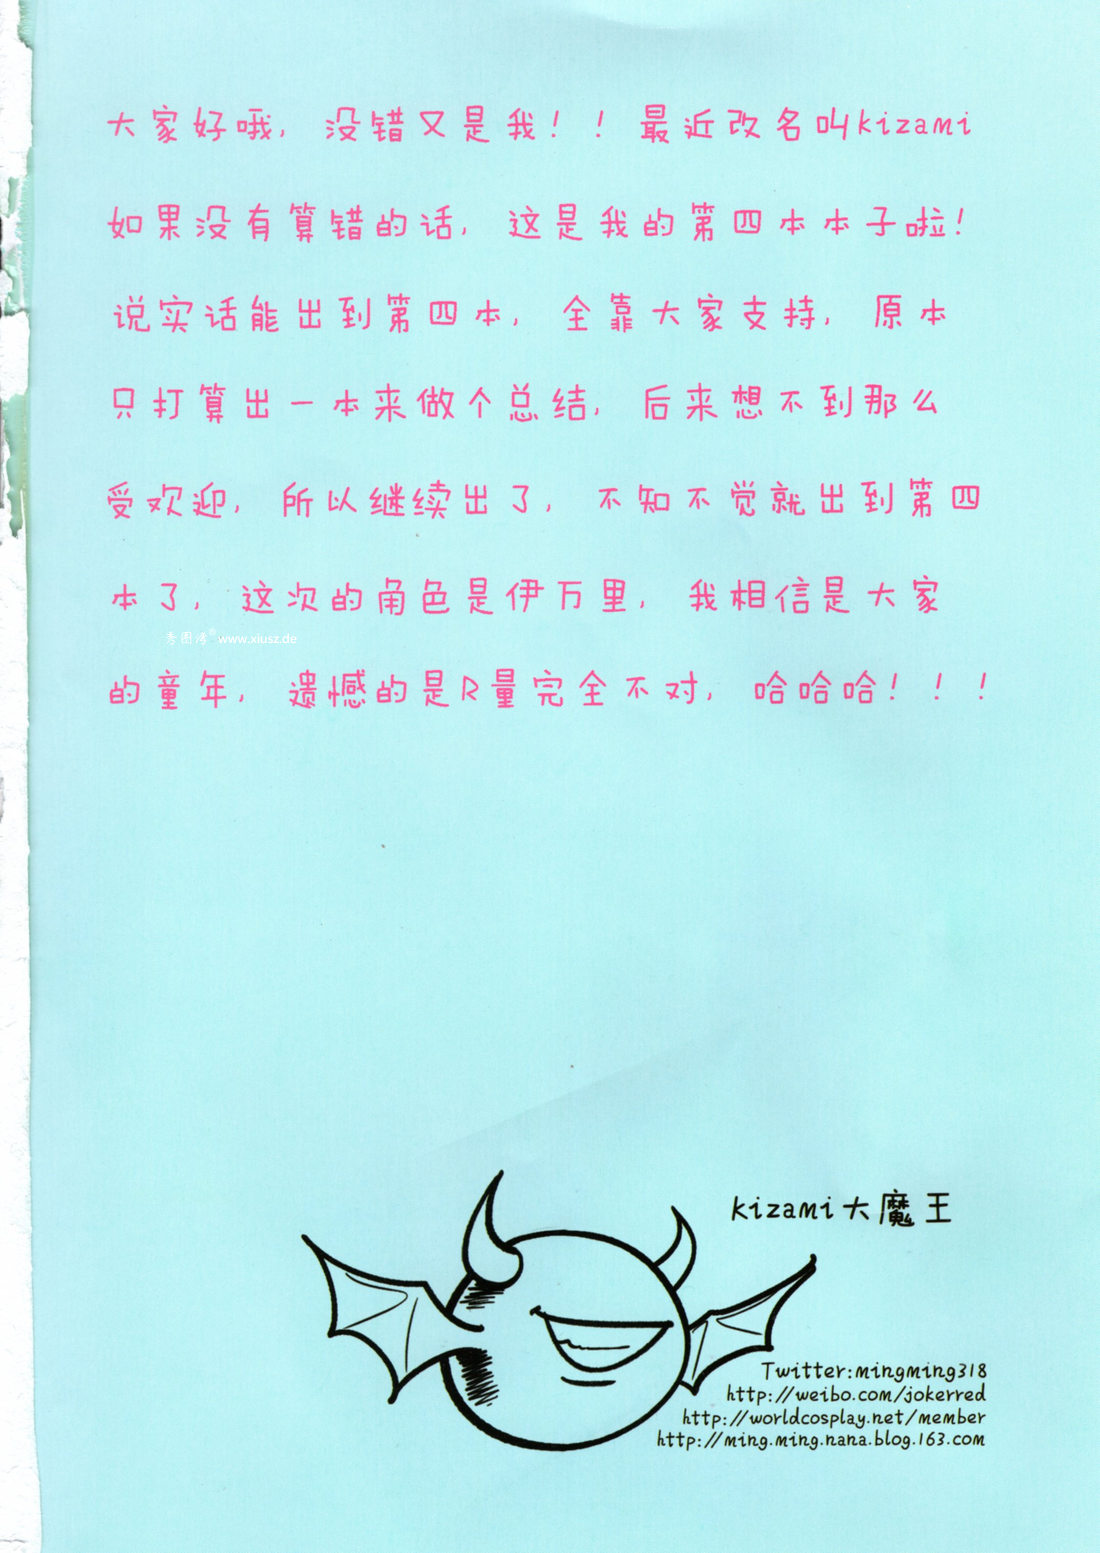 大家好哦，没错又是我！！最近改名叫kizami
如果没有算错的话，这是我的第四本本子啦！
说实话能出到第四本，全靠大家支持，原本
只打算出一本来做个总结，后来想不到那么
受欢迎，所以继续出了，不知不觉就出到第四
本了，这次的角色是伊万里，我相信是大家
秀图传© www.xiusz.de
的童年，遗憾的是R量完全不对，哈哈哈！！！
kizami大魔王
Twitter:mingming318
http://weibo.com/jokerred
http://worldcosplay.net/member
http://ming.ming.nana.blog.163.com